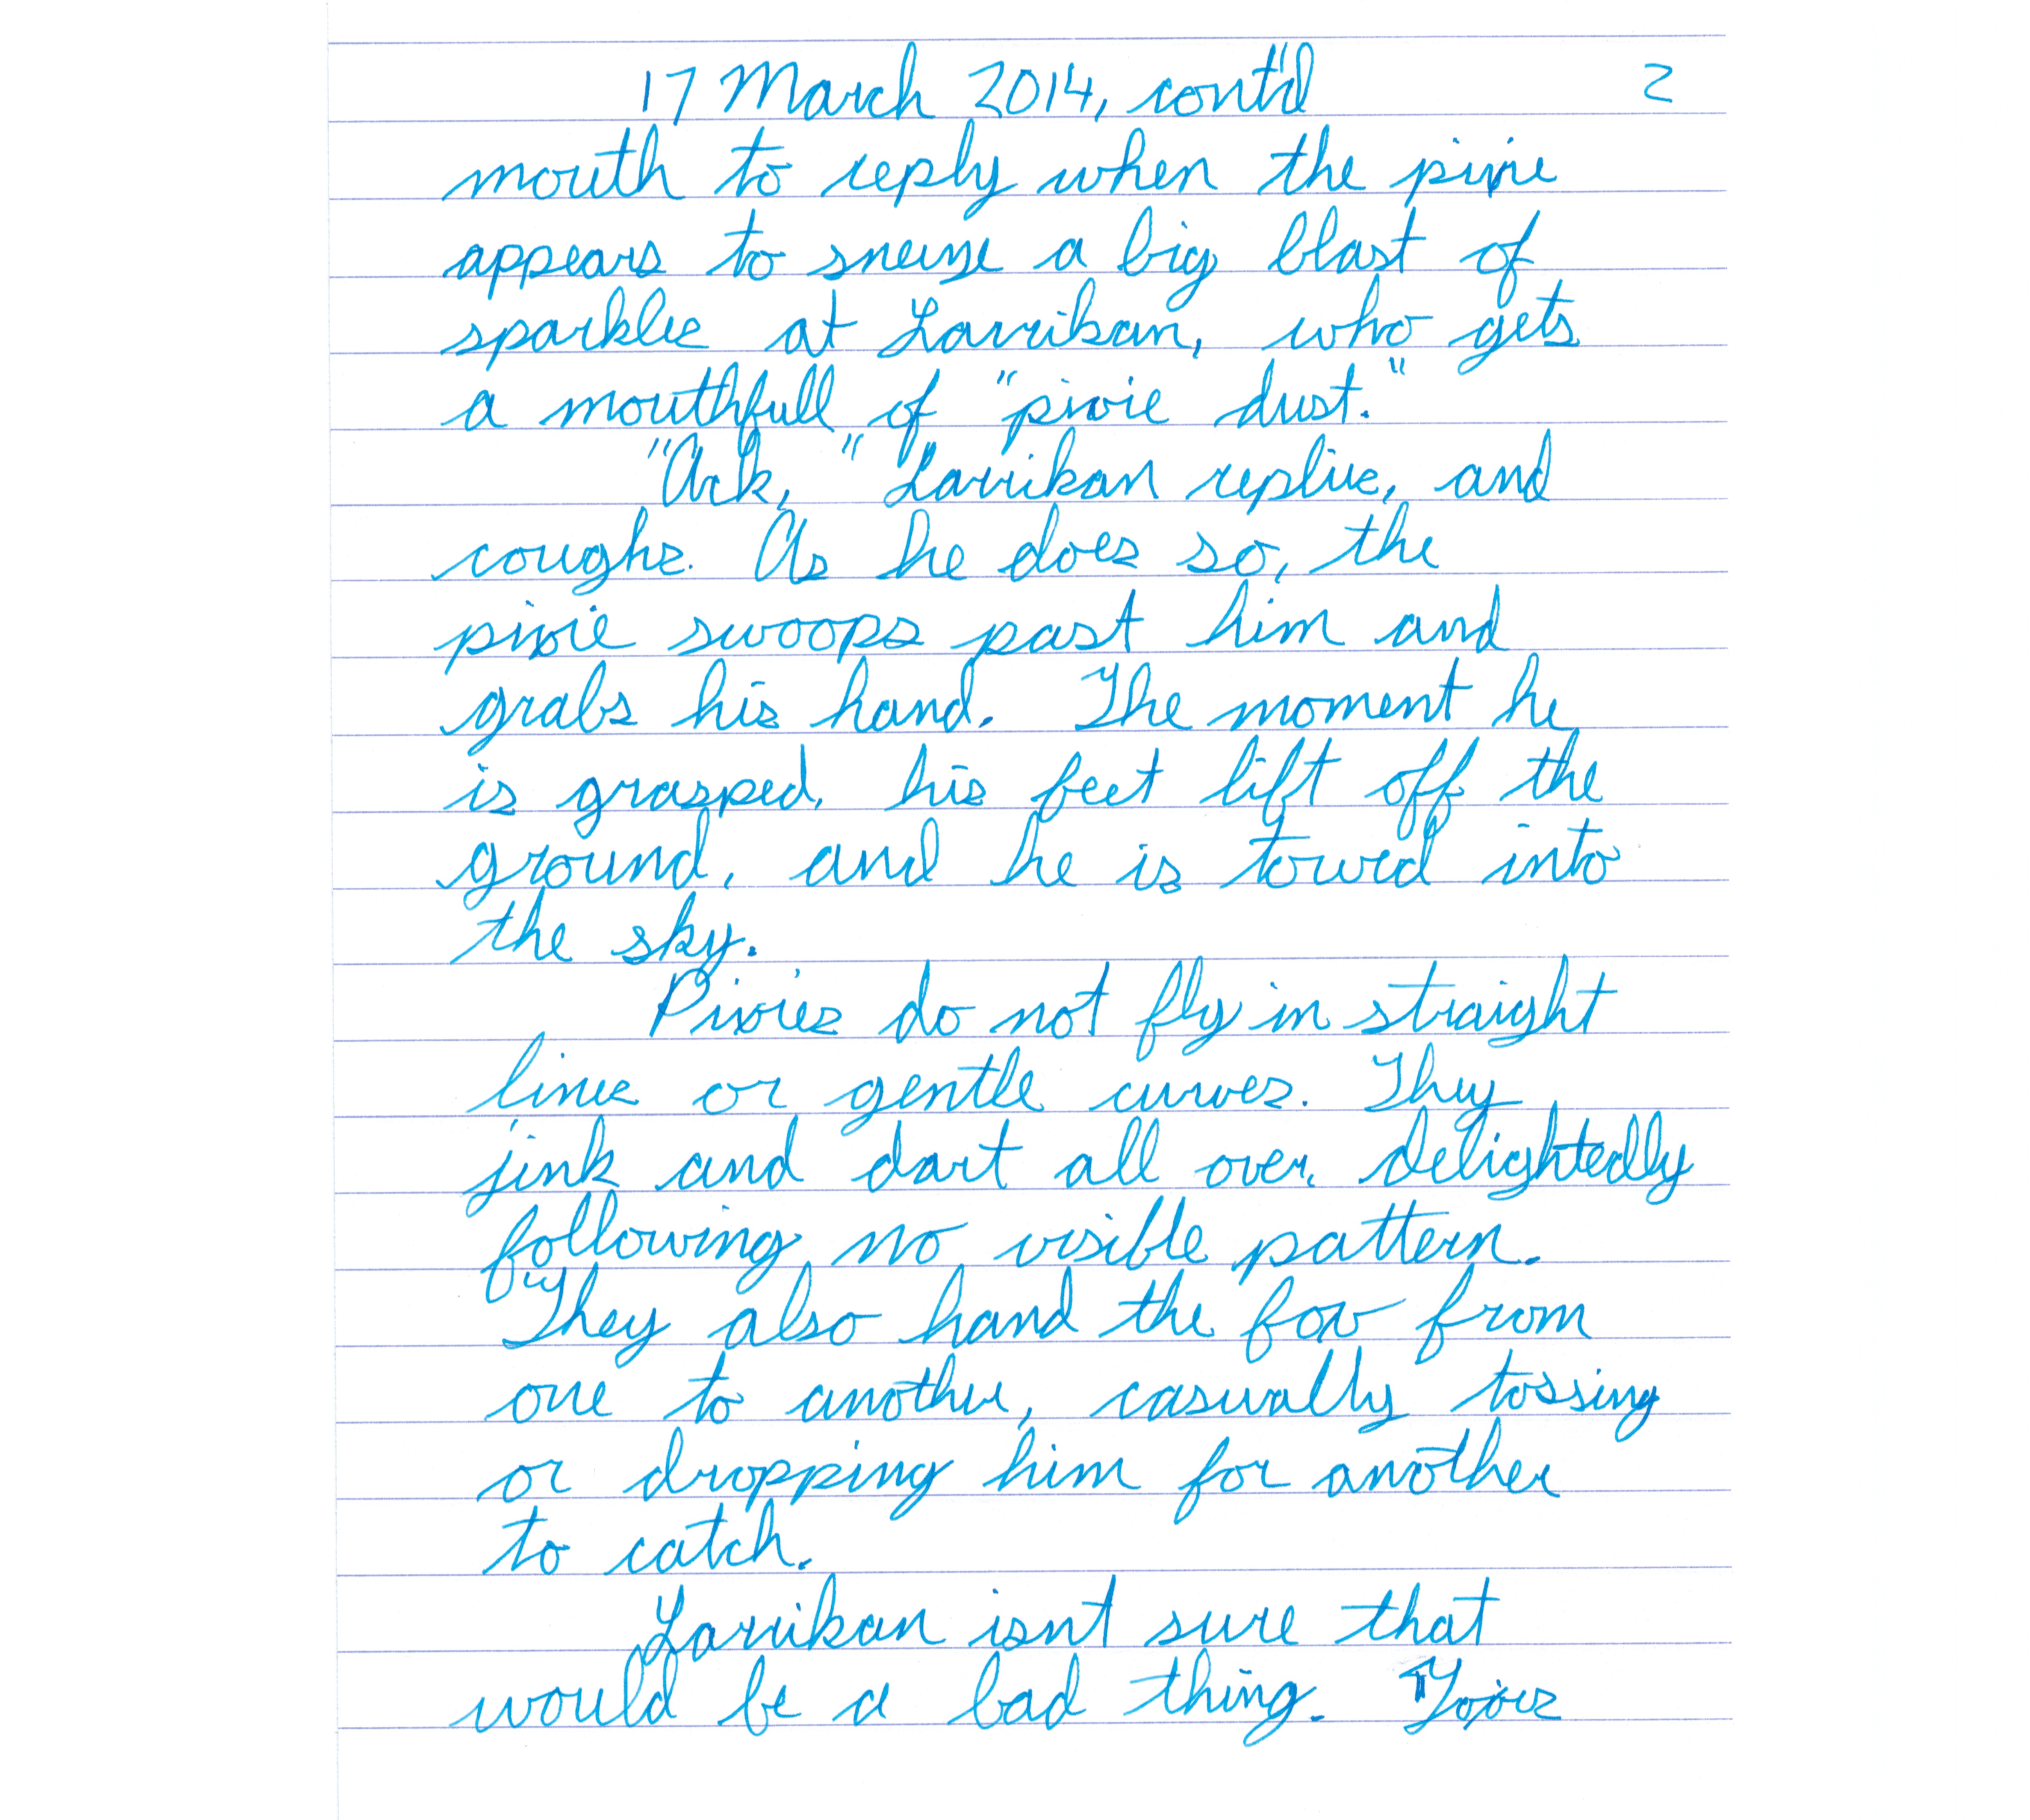 17 March 2014, cont'd 2
mouth to reply when the pixie
appears to sneeze a big blast of
sparkles at Larrikan, who gets
a mouthfull of "pixie dust."
"Ack," Larrikan replies, and
coughs. As he does so, the
pixie swoops past him and
grabs his hand. The moment he
is grasped, his feet lift off the
ground, and he is towed into
the sky.
Pixies do not fly in straight
lines or gentle curves. They
jink and dart all over, delightedly
following no visible pattern.
They also hand the fox from
one to another, casually tossing
or dropping him for another
to catch.
Larrikan isnt sure that
would be a bad thing.